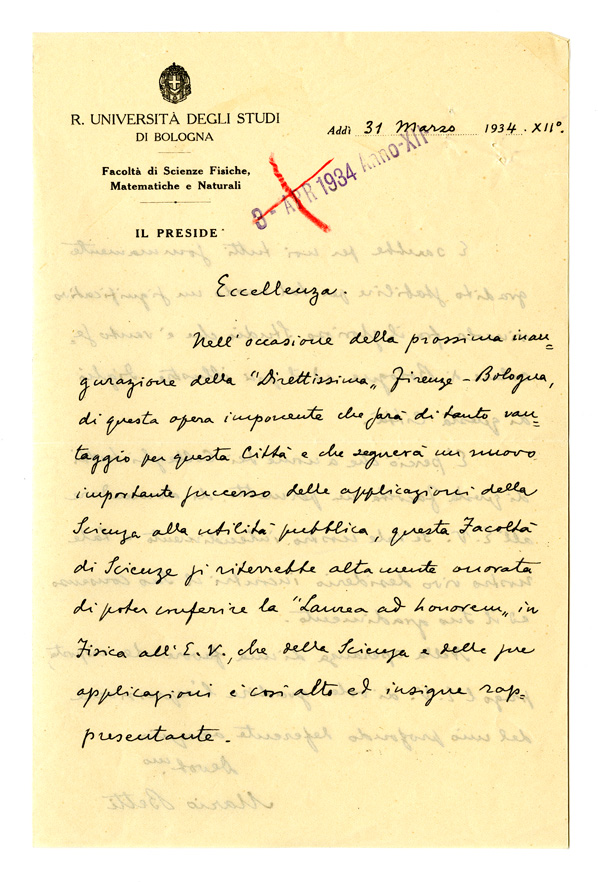 R. UNIVERSITÀ DEGLI STUDI
DI BOLOGNA
Facoltà di Scienze Fisiche,
Matematiche e Naturali
IL PRESIDE
Addì 31 Marzo 1934 · XII°.
3 - APR 1934 Anno-XII
Eccellenza.
Nell'occasione della prossima inau=
gurazione della "Direttissima„ Firenze - Bologna,
di questa opera imponente che sarà di tanto van=
taggio per questa Città e che segnerà un nuovo
importante successo delle applicazioni della
Scienza alla utilità pubblica, questa Facoltà
di Scienze si riterrebbe altamente onorata
di poter conferire la "Laurea ad honorem„ in
Fisica all'E. V., che della Scienza e delle sue
applicazioni è così alto ed insigne rap=
presentante.